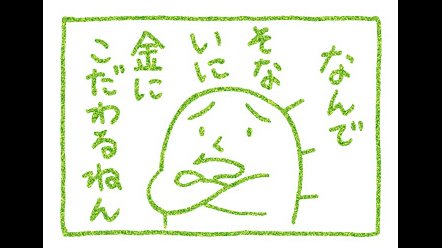 なんで
そな
いに
金に
こだわるねん